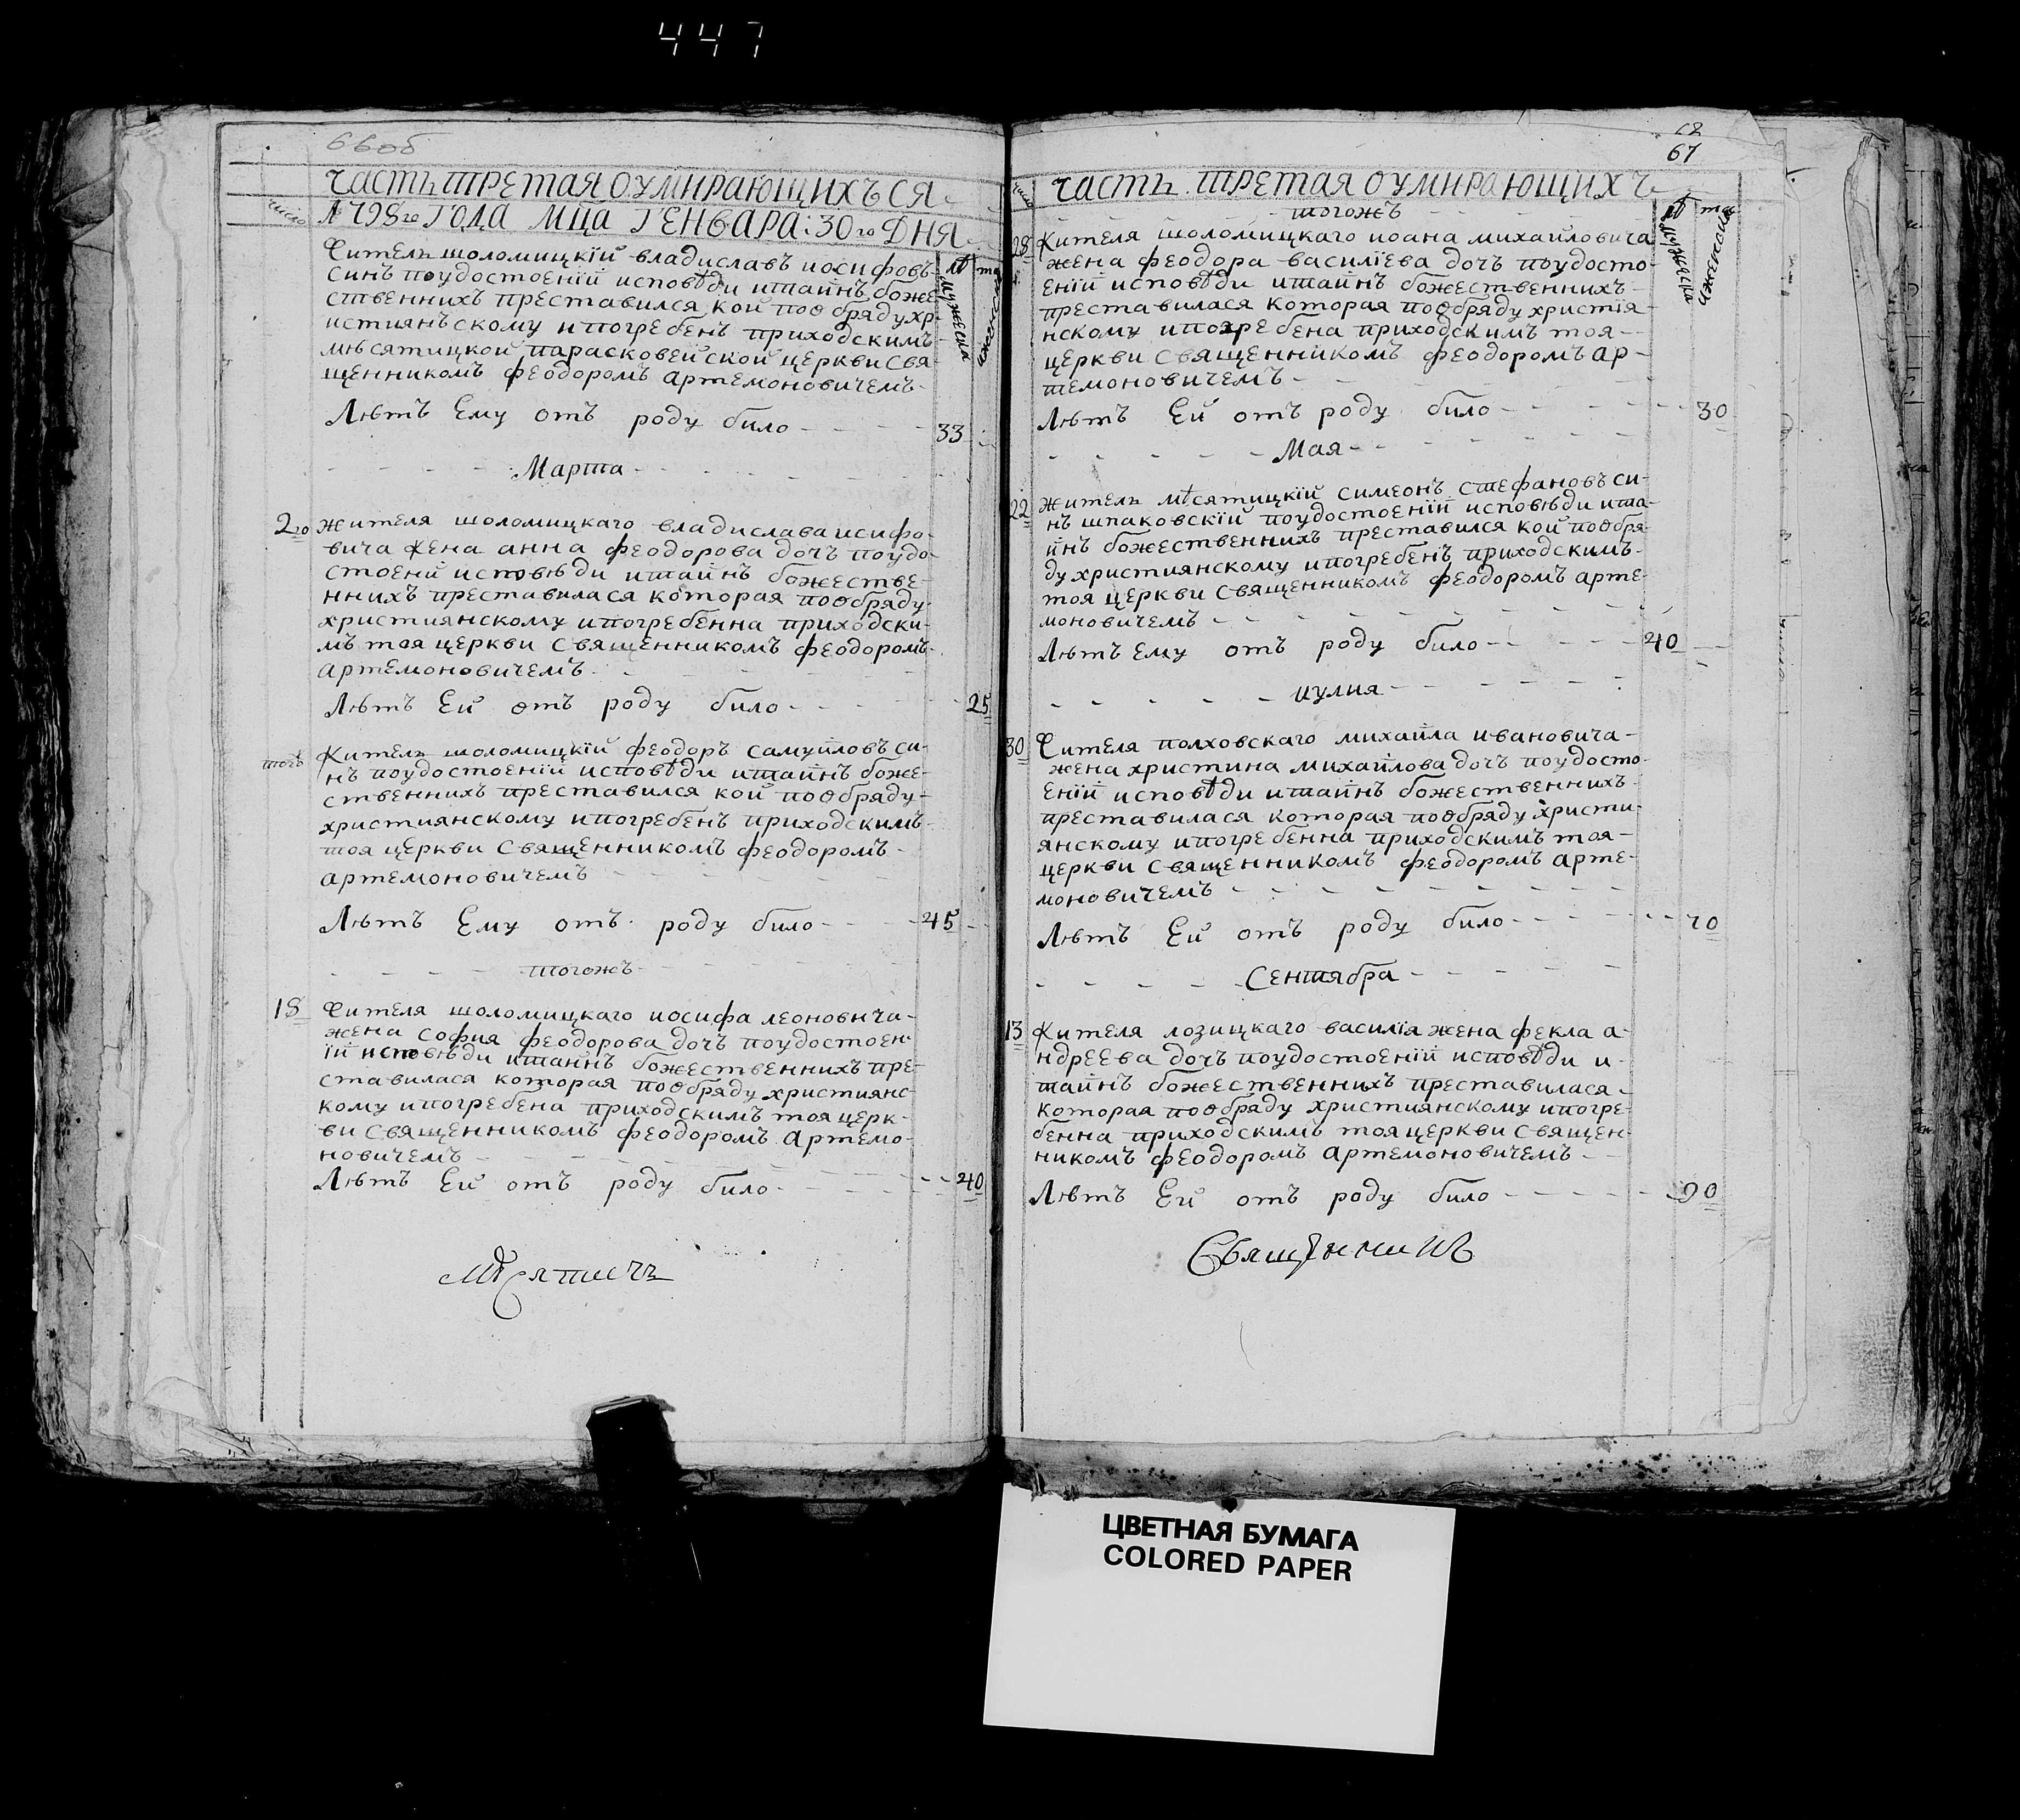 447
66об
ЧАСТЬ ТРЕТАЯ О УМИРАЮЩИХЪСЯ
число
1798го ГОДА МЦА ГЕНВАРА: 30го ДНЯ
лѣта
мужеска
женска
Жителъ шоломицкїй владиславъ иосифовъ
синъ поудостоенїй исповѣди итайнъ боже-
ственнихъ преставился кой пообряду хр-
истиянъскому ипогребенъ приходскимъ
мѣсятицкой парасковейской церкви Свя
щенникомъ феодоромъ артемоновичемъ
Лѣтъ Ему отъ роду било 33
Марта
2го жителя шоломицкаго владислава исифо-
вича жена анна феодорова дочъ поудо-
стоенй исповѣди итайнъ божестве-
ннихъ преставилася которая пообряду
християнскому ипогребенна приходски-
мъ тоя церкви Священникомъ феодоромъ
артемоновичемъ
Лѣтъ Ей отъ роду било 25
тогъ Жителъ шоломицкїй феодоръ самуйловъ си-
нъ поудостоенїй исповѣди итайнъ боже-
ственнихъ преставился кой пообряду
християнскому ипогребенъ приходскимъ
тоя церкви Священникомъ феодоромъ
артемоновичемъ
Лѣтъ Ему отъ роду било 45
тогожъ
18 Жителя шоломицкаго иосифа леоновича
жена софия феодорова дочъ поудостоен-
їй исповѣди итайнъ божественнихъ пре-
ставилася которая пообряду християнс-
кому ипогребена приходскимъ тоя церк-
ви Священникомъ феодоромъ Артемо-
новичемъ
Лѣтъ Ей отъ роду било 40
Мѣсятичъ
67
число
ЧАСТЬ ТРЕТАЯ О УМИРАЮЩИХЪ
тогожъ
лѣта
мужеска
женска
28 Жителя шоломицкаго иоана михайловича
жена феодора василїева дочъ поудосто-
енїй исповѣди итайнъ божественнихъ
преставилася которая пообряду христїя-
нскому ипогребена приходскимъ тоя
церкви Священникомъ феодоромъ ар-
темоновичемъ
Лѣтъ Ей отъ роду било 30
Мая
22 жителъ мѣсятицкїй симеонъ стефановъ си-
нъ шпаковскїй поудостоенїй исповѣди ита-
йнъ божественнихъ преставился кой пообря-
ду християнскому ипогребенъ приходскимъ
тоя церкви Священникомъ феодоромъ арте-
моновичемъ
Лѣтъ Ему отъ роду било 40
иулия
30 Жителя полховскаго михаила ивановича
жена христина михайлова дочъ поудосто-
енїй исповѣди итайнъ божественнихъ
преставилася которая пообряду христи-
янскому ипогребенна приходскимъ тоя
церкви Священникомъ феодоромъ арте-
моновичемъ
Лѣтъ Ей отъ роду било 70
Сентября
13 Жителя лозицкаго василїя жена фекла а-
ндреева дочъ поудостоенїй исповѣди и-
тайнъ божественнихъ преставилася
которая пообряду християнскому ипогре-
бенна приходскимъ тоя церкви Священ-
никомъ феодоромъ Артемоновичемъ
Лѣтъ Ей отъ роду било 90
Священникъ
ЦВЕТНАЯ БУМАГА
COLORED PAPER